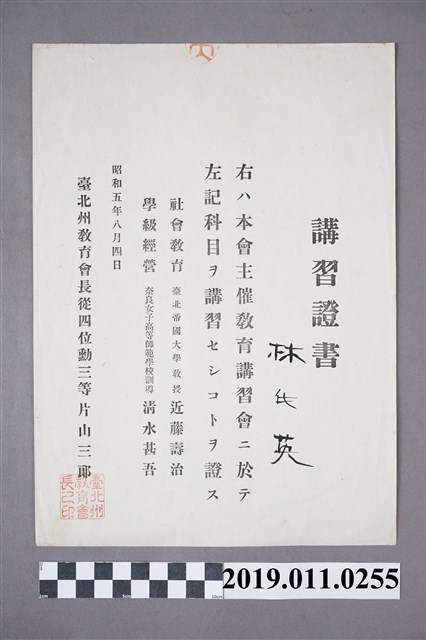 講習證書
林氏英
右ハ本會主催教育講習會ニ於テ
左記科目ヲ講習セシコトヲ證ス
社會教育 臺北帝國大學教授 近藤壽治
學級經營 奈良女子高等師範學校訓導 清水甚吾
昭和五年八月四日
臺北州教育會長從四位勳三等片山三郎
臺北州教育會長之印
2019.011.0255